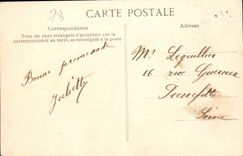 28
CARTE POSTALE
Correspondance
Adresse
Tous les pays étrangers n'acceptent pas la
correspondance au recto, se renseigner à la poste
Bonne promenade
Juliette
Mr Lequillier
16 rue
Seine